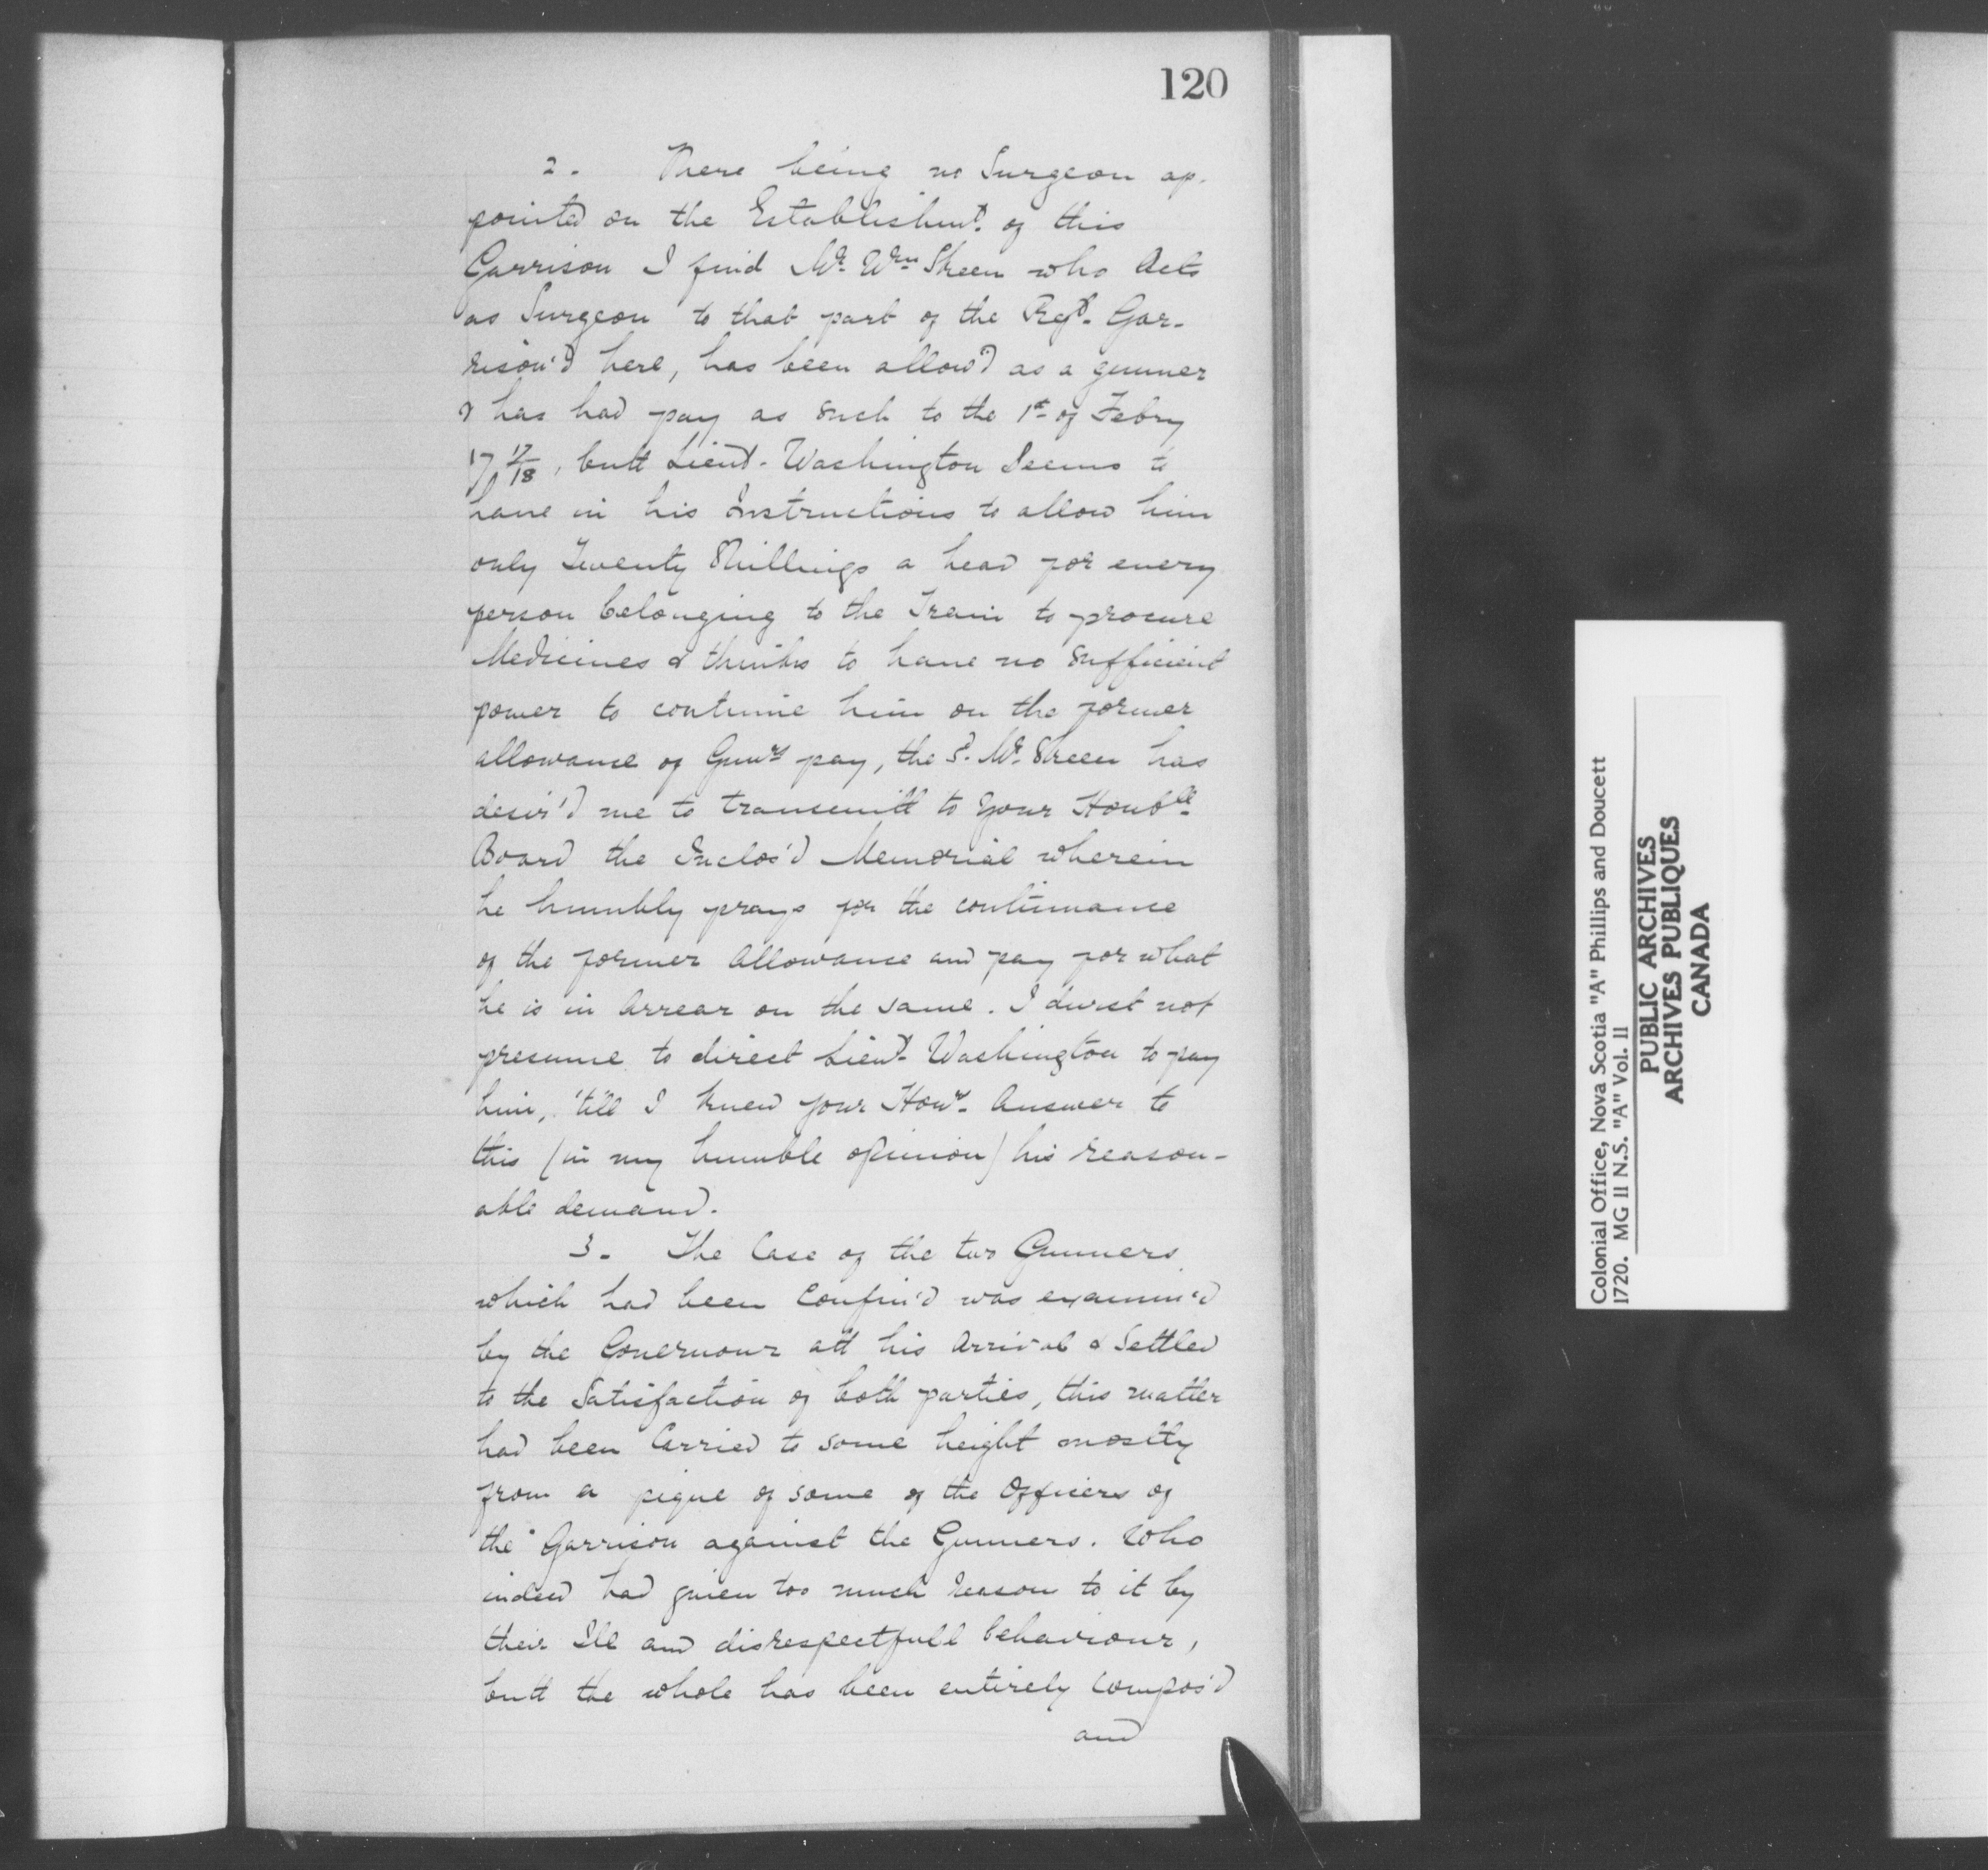 120
2. There being no Surgeon ap-
pointed on the Establishmt. of this
Garrison I find Mr. Wm Skeen who Acts
as Surgeon to that part of the Regt. Gar-
rison'd here, has been allow'd as a gunner
& has had pay as such to the 1st of Febry
17 17/18, butt Lieut. Washington Seems to
have in his Instructions to allow him
only Twenty Shillings a head for every
person belonging to the Train to procure
Medicines & thinks to have no Sufficient
power to continue him on the former
allowance of Gunrs pay, the sd. Mr. Skeen has
desir'd me to transmitt to your Honble
Board the Inclos'd Memorial wherein
he humbly prays for the continuance
of the former Allowance and pay for what
he is in Arrear on the same. I durst not
presume to direct Lieut. Washington to pay
him, 'till I knew your Honrs. Answer to
this (in my humble opinion) his reason-
able demand.
3. The Case of the two Gunners
which had been Confin'd was examin'd
by the Governour att his Arrival & Settled
to the Satisfaction of both parties, this matter
had been Carried to some height mostly
from a pique of some of the Officers of
the Garrison against the Gunners. Who
indeed had given too much reason to it by
their Ill and disrespectfull behaviour,
butt the whole has been entirely Compos'd
and
Colonial Office, Nova Scotia "A" Phillips and Doucett
1720. MG 11 N.S. "A" Vol. 11
PUBLIC ARCHIVES
ARCHIVES PUBLIQUES
CANADA